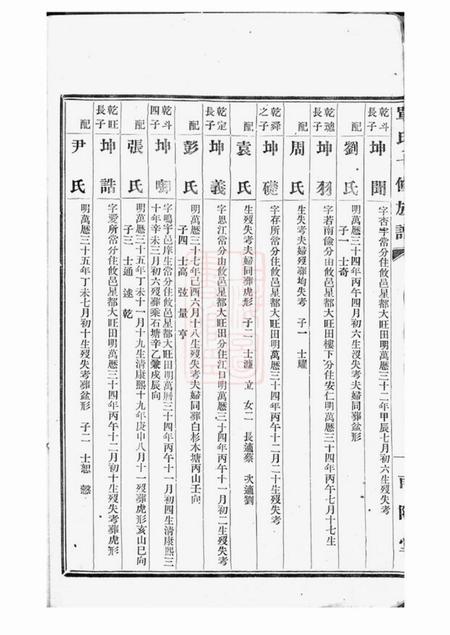 單氏十修族譜
南陽堂
乾斗長子 坤聞 字杏宇常分住攸邑星都大旺田明萬曆三十二年甲辰七月初六生歿失考
配 劉氏 明萬曆三十四年丙午四月初六生歿失考夫婦同葬盆形
子一 士奇
長子 坤羽 字若南儉分由攸邑星都大旺田樓下分住安仁明萬曆三十四年丙午七月十七生
配 周氏 生歿失考夫婦歿葬均失考 子一 士耀
乾舜之子 坤礎 字存所常分住攸邑星都大旺田明萬曆三十四年丙午十二月二十生
配 袁氏 生歿失考夫婦同葬虎形 子二 士 立 女二 長適蔡 次適劉
乾定長子 坤義 字思江常分由攸邑星都大旺田分住江口明萬曆三十四年丙午十一月初二生歿失考
配 彭氏 明萬曆三十七年己酉六月十八生歿失考夫婦同葬白杉木塘丙山壬向
子四 士高 弦 量 亨
乾斗四子 坤 字鳴宇邑庠生常分住攸邑星都大旺田明萬曆三十四年丙午十一月初四生清康熙三
十年辛未三月初六歿葬棗石塘辛乙兼戌辰向
配 張氏 明萬曆三十五年丁未十一月十九生清康熙十九年庚申八月十一歿葬虎形亥山巳向
子三 士通 述 乾
乾旺長子 坤誥 字愛所常分住攸邑星都大旺田明萬曆三十四年丙午十二月初十生歿失考葬虎形
配 尹氏 明萬曆三十五年丁未七月初十生歿失考葬盆形 子二 士恕 愨